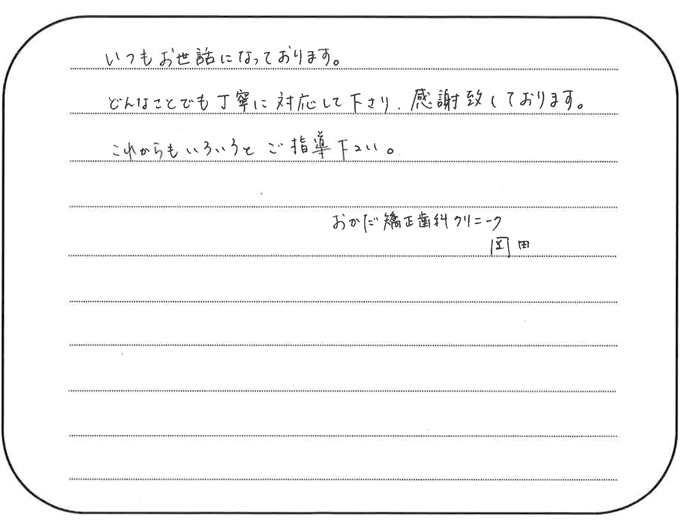 いつもお世話になっております。
どんなことでも丁寧に対応して下さり、感謝致しております。
これからもいろいろとご指導下さい。
おかだ矯正歯科クリニック
岡田